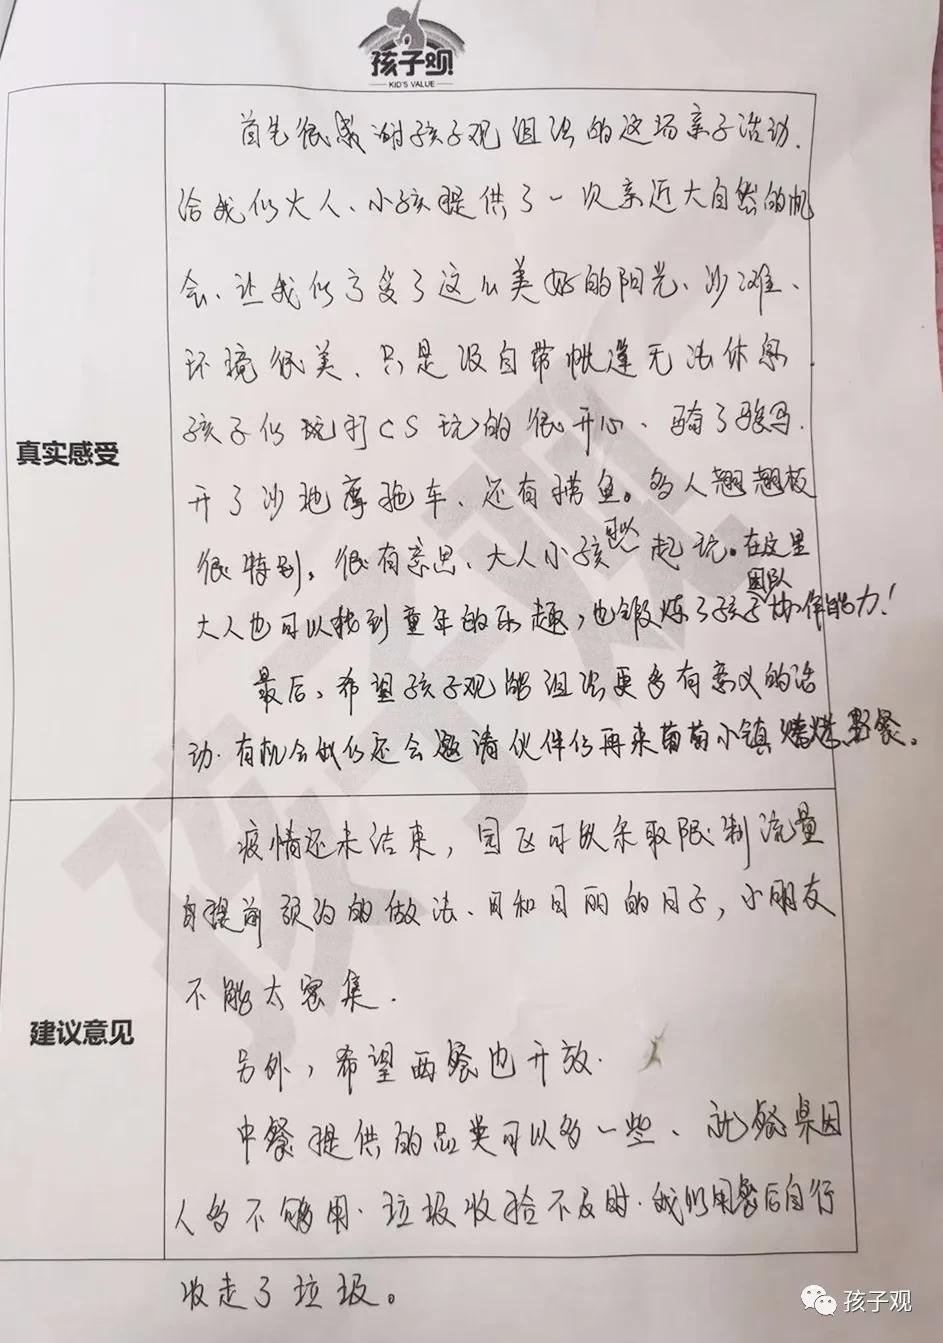 孩子观
KID'S VALUE
真实感受
首先很感谢孩子观组织的这场亲子活动.
给我们大人、小孩提供了一次亲近大自然的机
会、让我们享受了这么美好的阳光、沙滩、
环境很美、只是没自带帐篷无法休息
孩子们玩打CS玩的很开心、骑了骏马.
开了沙地摩拖车、还有捞鱼。多人翘翘板
很特别，很有意思、大人小孩可以一起玩。在这里
大人也可以找到童年的乐趣，也锻炼了孩子团队协作能力！
最后、希望孩子观能组织更多有意义的活
动.有机会我们还会邀请伙伴们再来葡萄小镇烧烤野餐。
建议意见
疫情还未结束，园区可以采取限制流量
自提前预约的做法、日和日丽的日子，小朋友
不能太密集.
另外，希望西餐也开放.
中餐提供的品类可以多一些、就餐桌因
人多不够用.垃圾收捡不及时.我们用餐后自行
收走了垃圾。
孩子观